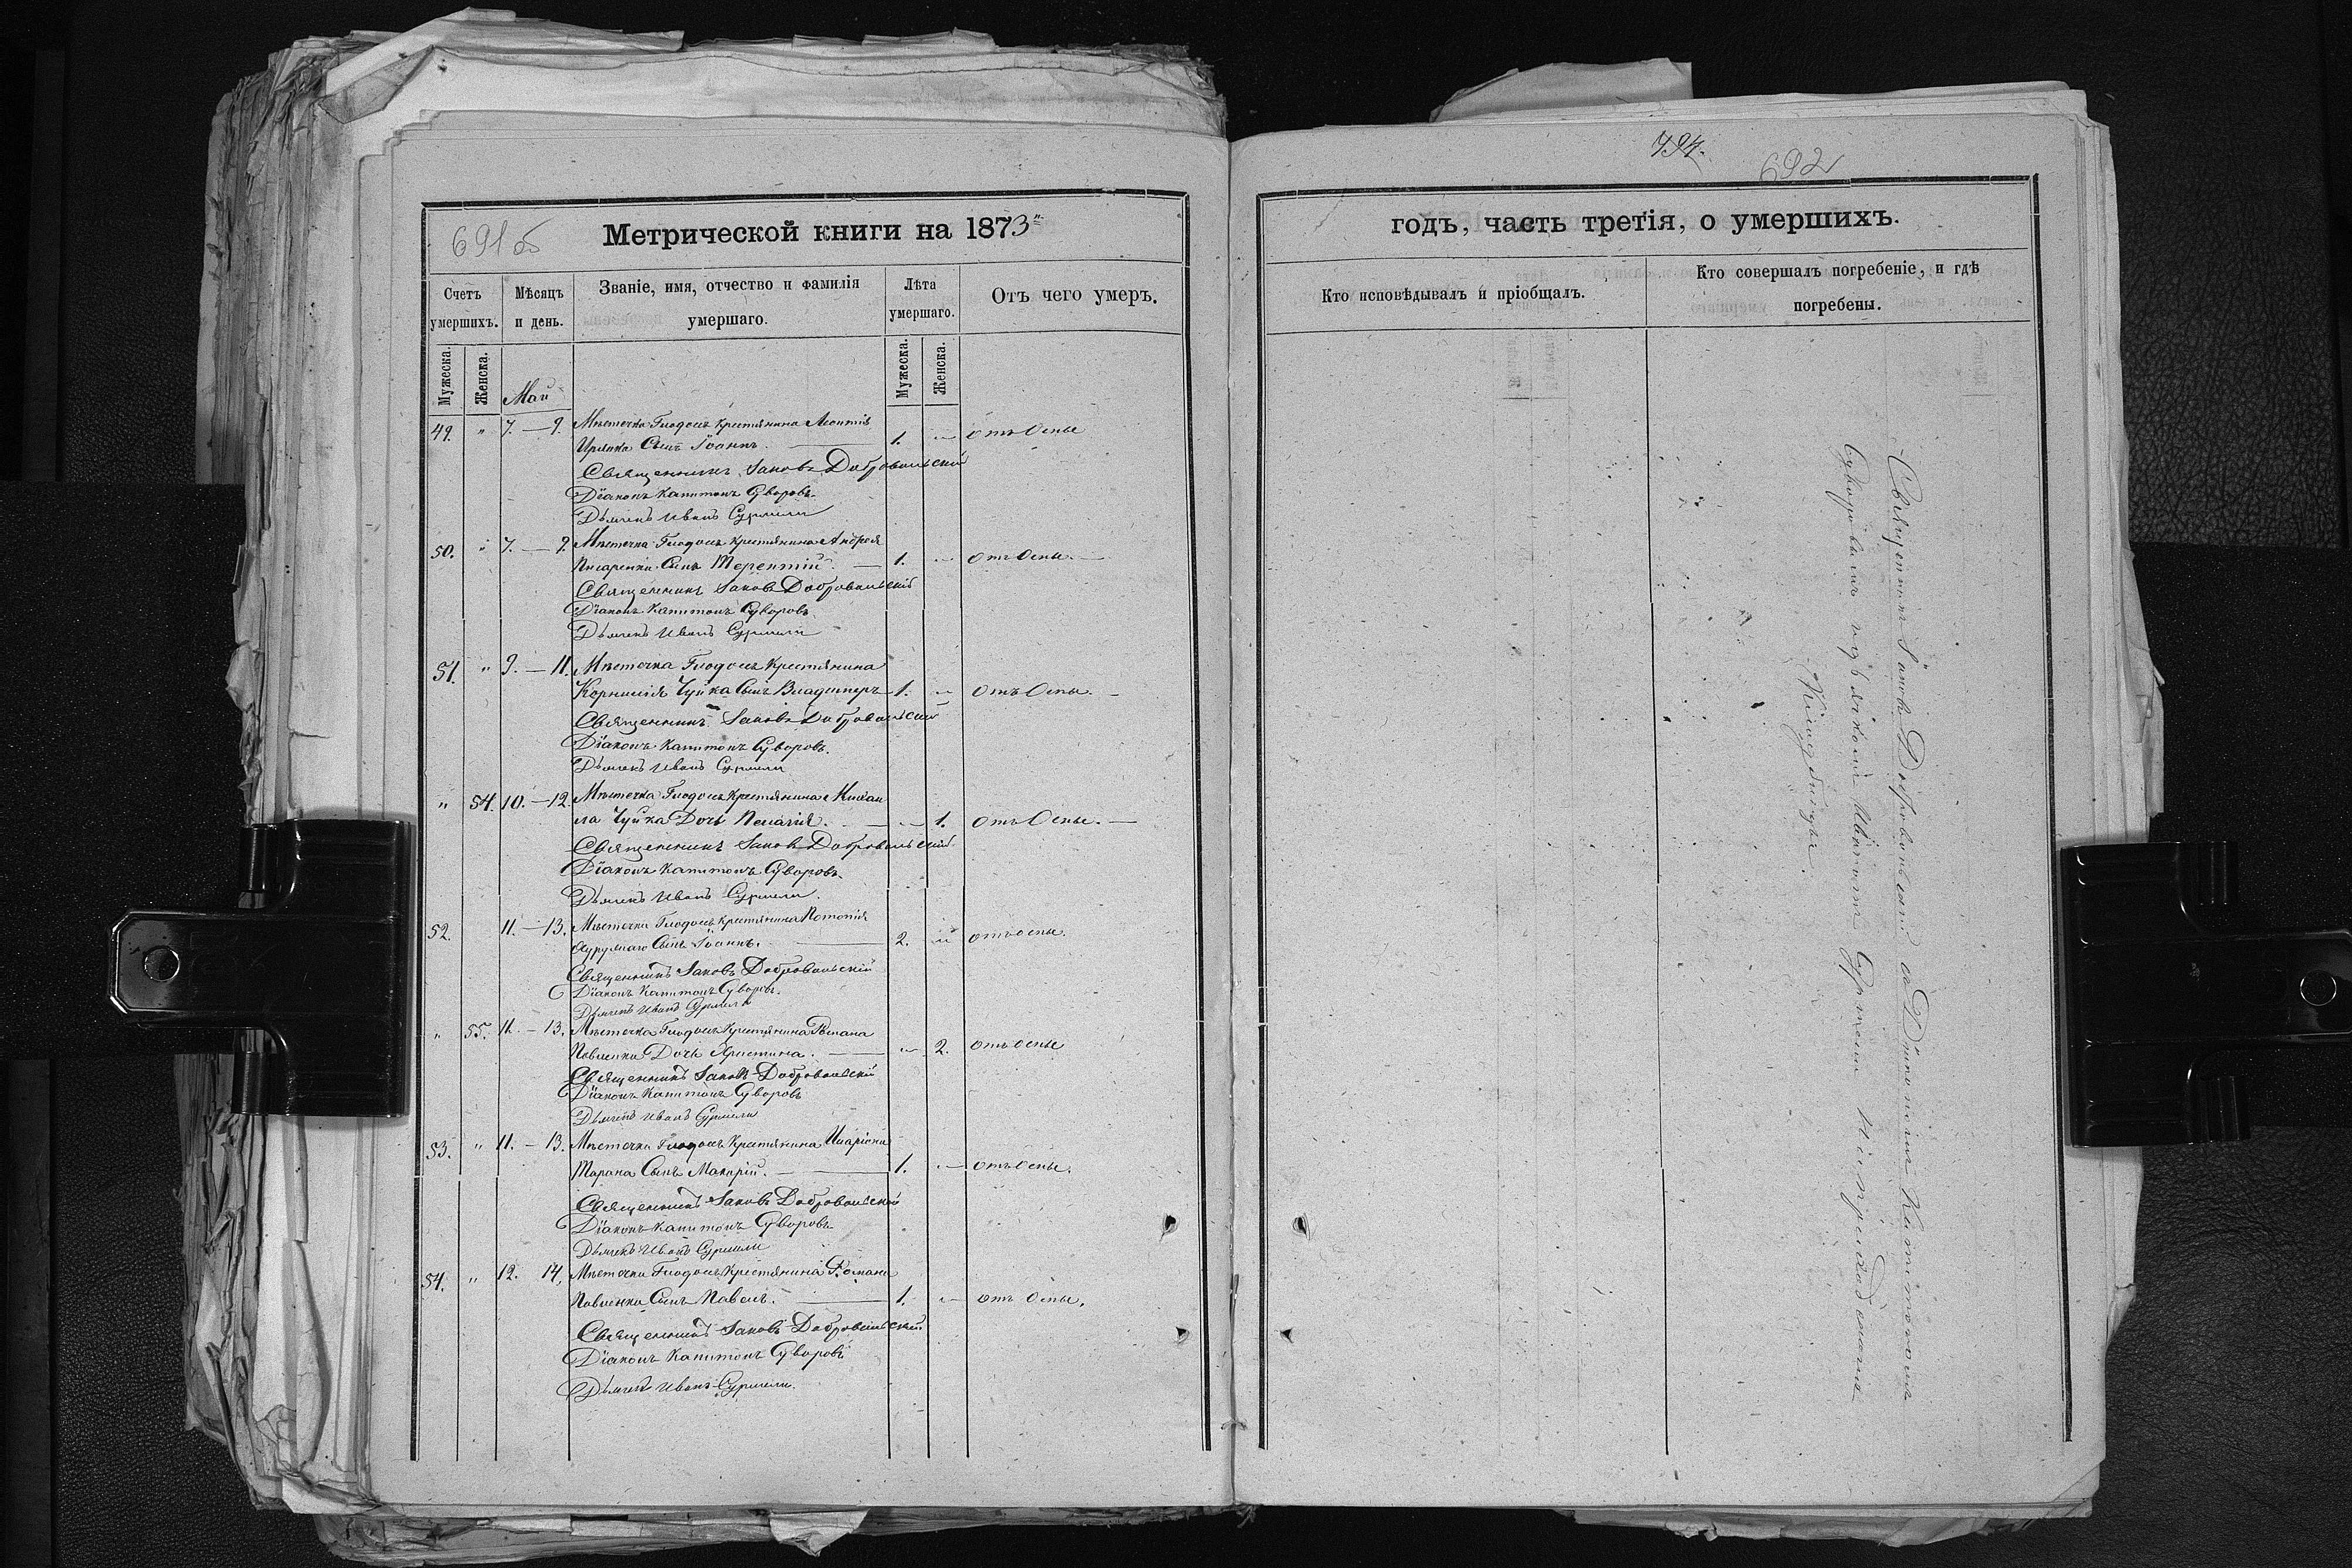 691 об
Метрической книги на 1873
Счетъ умершихъ.
Мѣсяцъ и день.
Званіе, имя, отчество и фамилія умершаго.
Лѣта умершаго.
Отъ чего умеръ.
Мужеска.
Женска.
Май
Мужеска.
Женска.
49. " 7. — 9. Мѣстечка Глодосъ крестянина Леонтія
Сынъ Іоаннъ. 1. — отъ Оспы
Священникъ Іаковъ Добровольскій
Діаконъ Капитонъ Суворовъ.
Дьячекъ Иванъ
50. " 7. — 9. Мѣстечка Глодосъ крестянина Андрея
Писаренка Сынъ Терентій. — 1. — отъ Оспы. —
Священникъ Іаковъ Добровольскій
Діаконъ Капитонъ Суворовъ
Дьячекъ Иванъ
51. " 9. — 11. Мѣстечка Глодосъ Крестянина
Корнилія Чуйка Сынъ Владимеръ 1. — отъ Оспы. —
Священникъ Іаковъ Добровольскій
Діаконъ Капитонъ Суворовъ.
Дьячекъ Иванъ
" 54. 10. — 12. Мѣстечка Глодосъ Крестянина Михаи
ла Чуйка Дочь Пелагія. — — 1. отъ Оспы. —
Священникъ Іаковъ Добровольскій
Діаконъ Капитонъ Суворовъ
Дьячекъ Иванъ
52. 11. — 13. Мѣстечка Глодосъ крестянина
Сынъ Іоаннъ. — 2. " отъ оспы.
Священникъ Іаковъ Добровольскій
Діаконъ Капитонъ Суворовъ.
Дьячекъ Иванъ
" 55. 11. — 13. Мѣстечка Глодосъ Крестянина Романа
Павленка Дочь Христина. — — 2. отъ оспы
Священникъ Іаковъ Добровольскій
Діаконъ Капитонъ Суворовъ
Дьячекъ Иванъ
53. " 11. — 13. Мѣстечка Глодосъ Крестянина Иларіона
Тарана Сынъ Макарій. — 1. — отъ оспы.
Священникъ Іаковъ Добровольскій
Діаконъ Капитонъ Суворовъ
Дьячекъ Иванъ
54. " 12. 14. Мѣстечка Глодосъ Крестянина Романа
Павленка Сынъ Павелъ. — 1. — отъ оспы.
Священникъ Іаковъ Добровольскій
Діаконъ Капитонъ Суворовъ
Дьячекъ Иванъ
494.
692
годъ, часть третія, о умершихъ.
Кто исповѣдывалъ и пріобщалъ.
Кто совершалъ погребеніе, и гдѣ погребены.
Священникъ Іаковъ Добровольскій съ Діакономъ Капитономъ
Суворовымъ и дьякомъ Иваномъ на приходскомъ
Кладбищѣ.